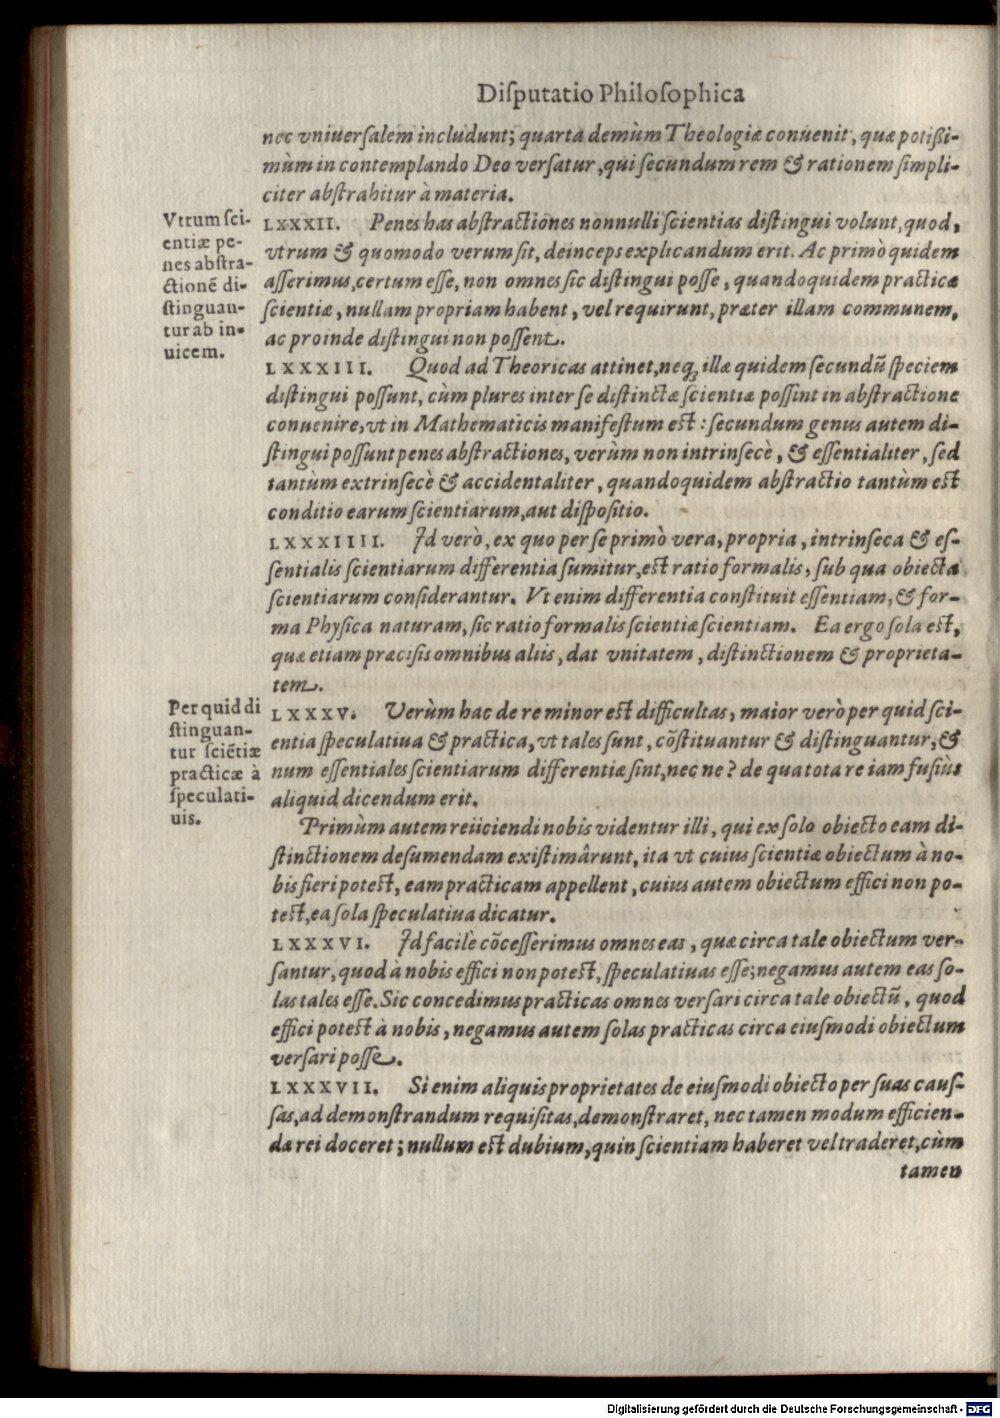 Diſputatio Philoſophica
nec vniuerſalem includunt; quarta demùm Theologiæ conuenit, quæ potißi-
mùm in contemplando Deo verſatur, qui ſecundum rem & rationem ſimpli-
citer abſtrahitur à materia.
Vtrum ſci-
entiæ pe-
nes abſtra-
ctionē di-
ſtinguan-
tur ab in-
uicem.
LXXXII. Penes has abſtractiones nonnulli ſcientias diſtingui volunt, quod,
vtrum & quomodo verum ſit, deinceps explicandum erit. Ac primò quidem
aſſerimus, certum eſſe, non omnes ſic diſtingui poſſe, quandoquidem practicæ
ſcientiæ, nullam propriam habent, vel requirunt, præter illam communem,
ac proinde diſtingui non poſſent.
LXXXIII. Quod ad Theoricas attinet, neq; illæ quidem ſecundū ſpeciem
diſtingui poſſunt, cùm plures inter ſe diſtinctæ ſcientiæ poſſint in abſtractione
conuenire, vt in Mathematicis manifeſtum eſt: ſecundum genus autem di-
ſtingui poſſunt penes abſtractiones, verùm non intrinſecè, & eſſentialiter, ſed
tantùm extrinſecè & accidentaliter, quandoquidem abſtractio tantùm eſt
conditio earum ſcientiarum, aut diſpoſitio.
LXXXIIII. Id verò, ex quo per ſe primò vera, propria, intrinſeca & eſ-
ſentialis ſcientiarum differentia ſumitur, eſt ratio formalis, ſub qua obiecta
ſcientiarum conſiderantur. Vt enim differentia conſtituit eſſentiam, & for-
ma Phyſica naturam, ſic ratio formalis ſcientiæ ſcientiam. Ea ergo ſola eſt,
quæ etiam præciſis omnibus aliis, dat vnitatem, diſtinctionem & proprieta-
tem.
Per quid di
ſtinguan-
tur ſciētiæ
practicæ à
ſpeculati-
uis.
LXXXV. Verùm hac de re minor eſt difficultas, maior verò per quid ſci-
entia ſpeculatiua & practica, vt tales ſunt, cōſtituantur & diſtinguantur, &
num eſſentiales ſcientiarum differentiæ ſint, nec ne? de qua tota re iam fuſiùs
aliquid dicendum erit.
Primùm autem reiiciendi nobis videntur illi, qui ex ſolo obiecto eam di-
ſtinctionem deſumendam exiſtimârunt, ita vt cuius ſcientiæ obiectum à no-
bis fieri poteſt, eam practicam appellent, cuius autem obiectum effici non po-
teſt, ea ſola ſpeculatiua dicatur.
LXXXVI. Id facilè cōceſſerimus omnes eas, quæ circa tale obiectum ver-
ſantur, quod à nobis effici non poteſt, ſpeculatiuas eſſe; negamus autem eas ſo-
las tales eſſe. Sic concedimus practicas omnes verſari circa tale obiectū, quod
effici poteſt à nobis, negamus autem ſolas practicas circa eiuſmodi obiectum
verſari poſſe.
LXXXVII. Si enim aliquis proprietates de eiuſmodi obiecto per ſuas cauſ-
ſas, ad demonſtrandum requiſitas, demonſtraret, nec tamen modum efficien-
dæ rei doceret; nullum eſt dubium, quin ſcientiam haberet vel traderet, cùm
tamen
Digitalisierung gefördert durch die Deutsche Forschungsgemeinschaft - DFG